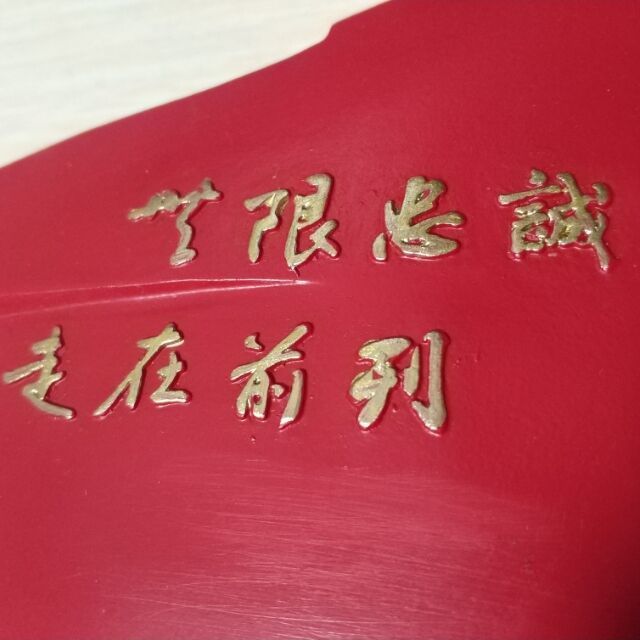 無限忠誠
走在前列